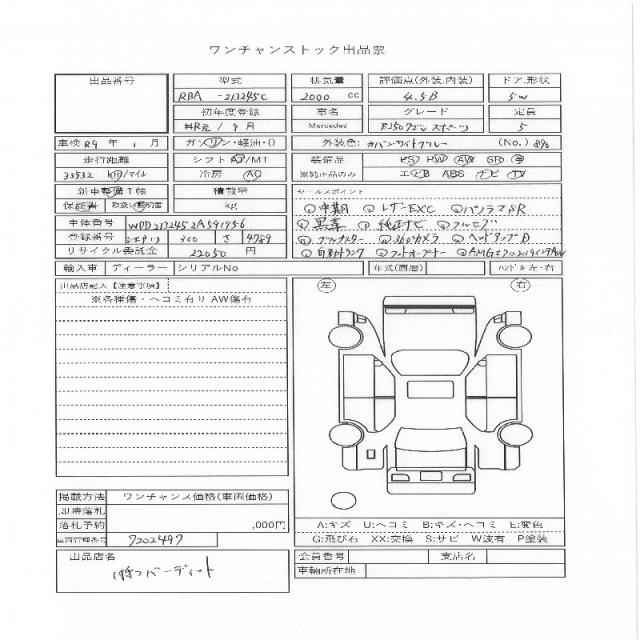 ワンチャンストック出品票
出品番号 型式 排気量 評価点(外装.内装) ドア.形状
RBA -213245C 2000 cc 4.5B 5W
初年度登録 車名 グレード 定員
R元/9月 Mercedes E250ワゴン スポーツ 5
車検 R9年 1月 ガソリン・軽油・() 外装色: (No.) 896
走行距離 シフト AT/MT 装備品 PS PW AW SR 革
33532 km/マイル 冷房 AC ※純正品のみ エアB ABS ナビ TV
新車整備手帳 積載量 セールスポイント
保証書 取扱い説明書 kg 中期 レザーEXC パノラマSR
車体番号 WDD2132452A591956 黒革 純正ナビ フルセグ
登録番号 300 さ 4789 360°カメラ ヘッドアップD
リサイクル委託金 22050 円 自動トランク フットオープナー
輸入車 ディーラー シリアルNo 年式(西暦) ハンドル 左・右
出品店記入【注意事項】 左 右
※各種傷・ヘコミ有り AW傷有
掲載方法 ワンチャンス価格(車両価格)
即時落札
落札予約 ,000円 A:キズ U:ヘコミ B:キズ・ヘコミ E:変色
7202497 G:飛び石 XX:交換 S:サビ W波有 P塗装
出品店名 会員番号 支店名
バーディット 車輌所在地